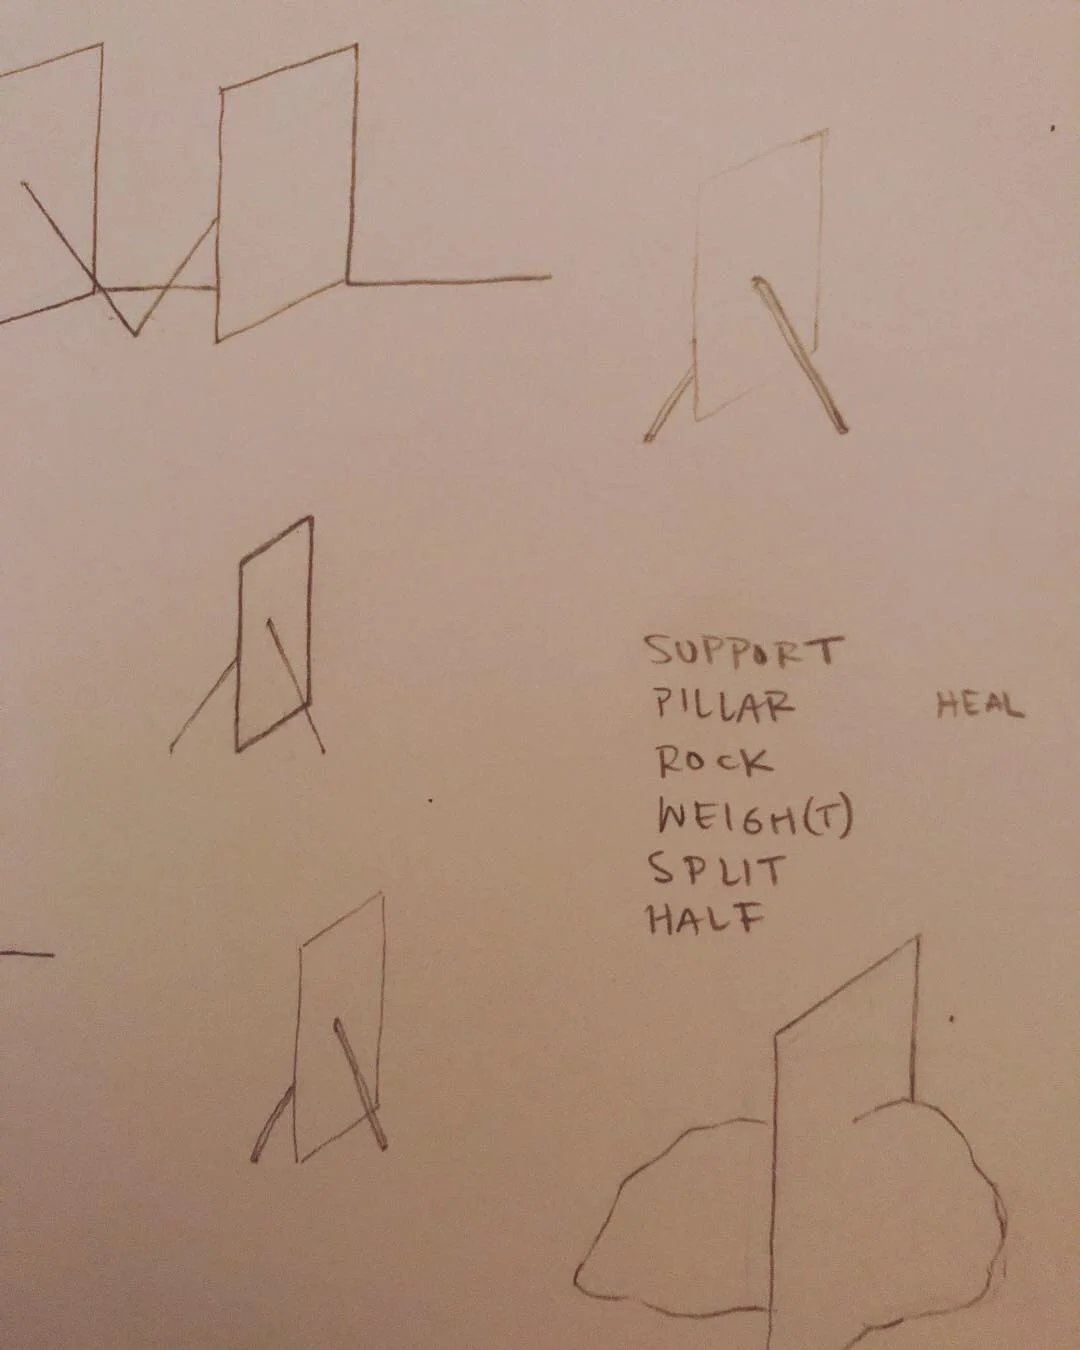 SUPPORT
PILLAR HEAL
ROCK
WEIGH(T)
SPLIT
HALF